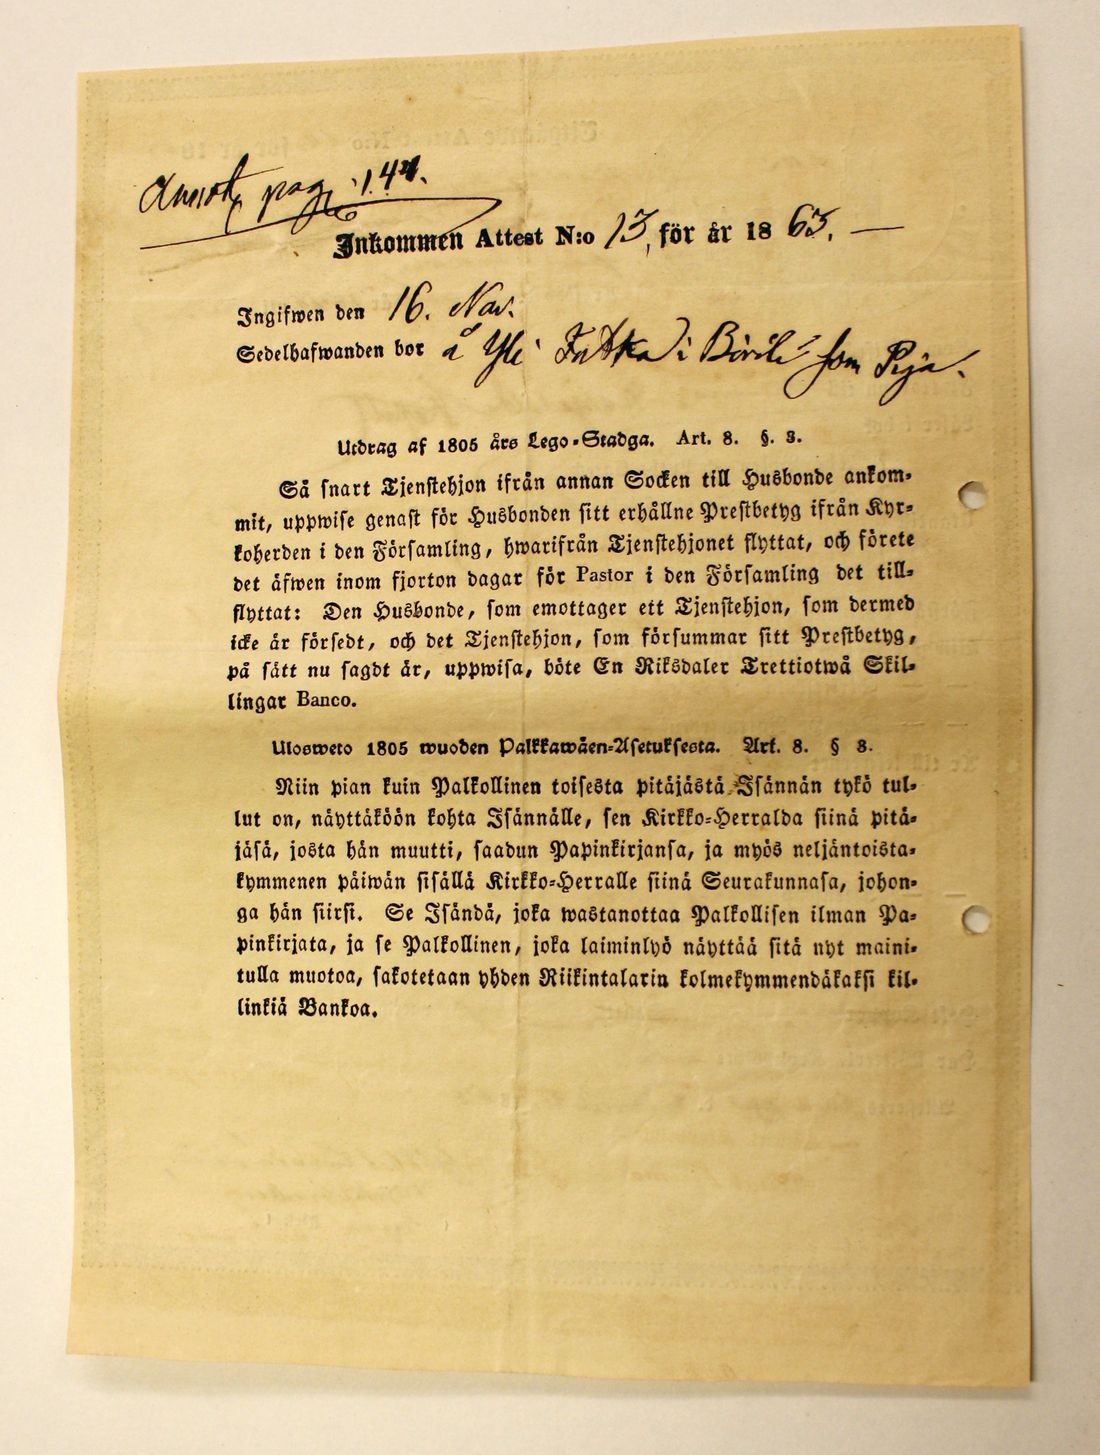 Annot. pag. 144.
Inkommen Attest N:o 13, för år 1863.
Ingifwen den 16. Nov.
Sedelhafwanden bor å Yli i som Piga.
Utdrag af 1805 års Lego-Stadga. Art. 8. §. 3.
Så snart Tjenstehjon ifrån annan Socken till Husbonde ankom-
mit, uppwise genast för Husbonden sitt erhållne Prestbetyg ifrån Kyr-
koherden i den Församling, hwarifrån Tjenstehjonet flyttat, och förete
det äfwen inom fjorton dagar för Pastor i den Församling det till-
flyttat: Den Husbonde, som emottager ett Tjenstehjon, som dermed
icke är försedt, och det Tjenstehjon, som försummar sitt Prestbetyg,
på sätt nu sagdt är, uppwisa, böte En Riksdaler Trettiotwå Skil-
lingar Banco.
Ulosweto 1805 wuoden Palkkawäen-Asetuksesta. Art. 8. § 3.
Niin pian kuin Palkollinen toisesta pitäjästä Isännän tykö tul-
lut on, näyttäköön kohta Isännälle, sen Kirkko-Herralda siinä pitä-
jäsä, josta hän muutti, saadun Papinkirjansa, ja myös neljäntoista-
kymmenen päiwän sisällä Kirkko-Herralle siinä Seurakunnasa, johon-
ga hän siirsi. Se Isändä, joka wastanottaa Palkollisen ilman Pa-
pinkirjata, ja se Palkollinen, joka laiminlyö näyttää sitä nyt maini-
tulla muotoa, sakotetaan yhden Riikintalarin kolmekymmendäkaksi kil-
linkiä Bankoa.